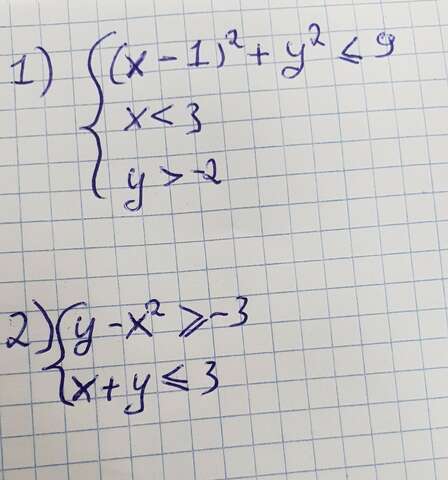 1) { (x - 1)² + y² ≤ 9
x < 3
y > -2
2) { y - x² ≥ -3
x + y ≤ 3